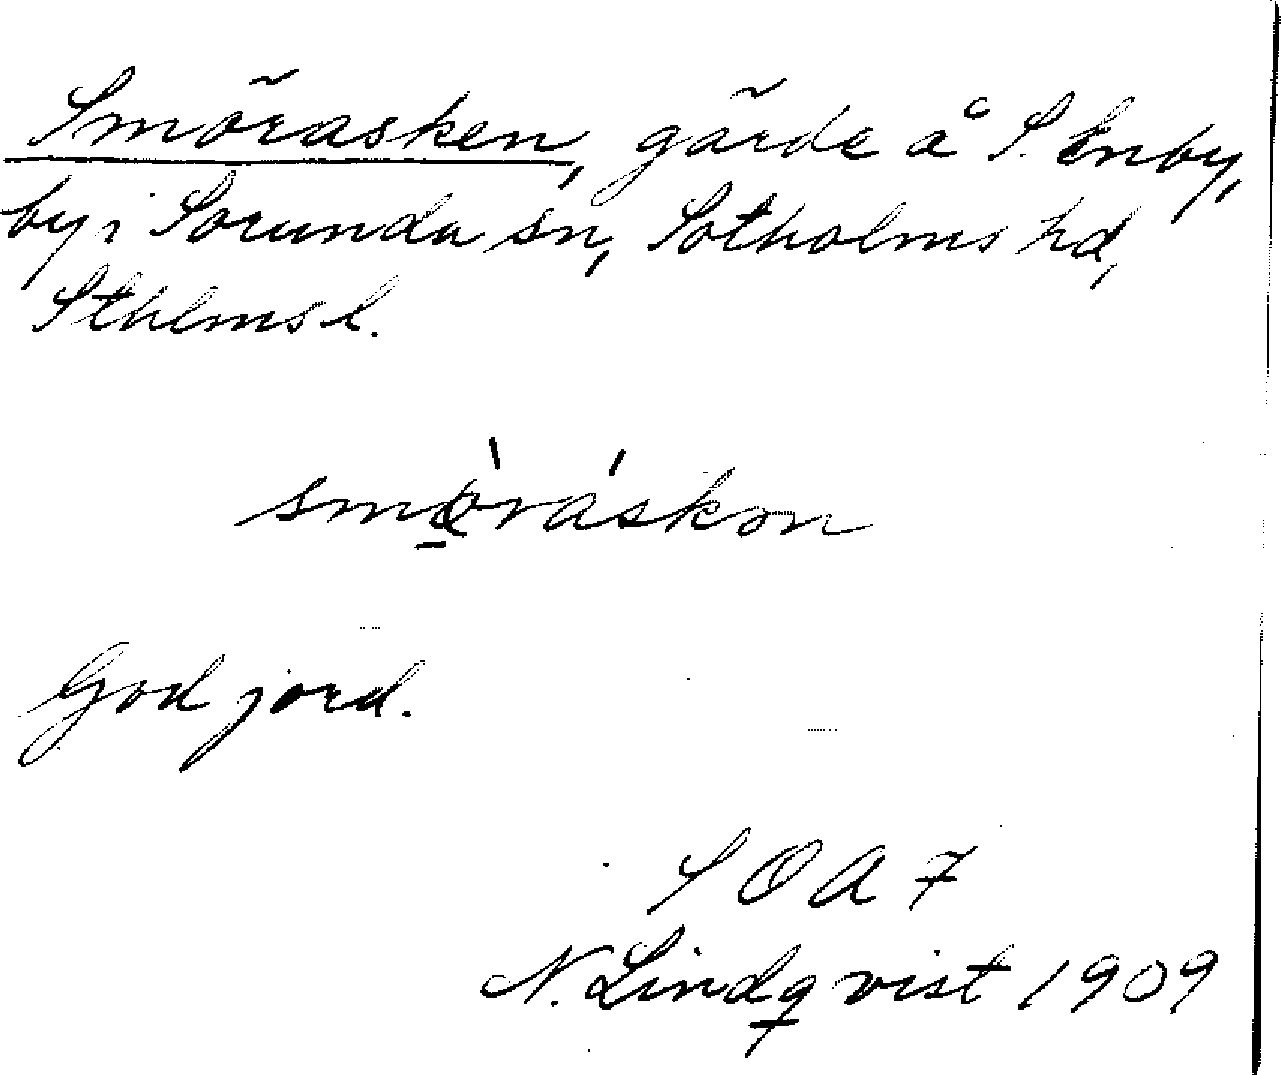 Smörasken, gärde å S. Enby,
by i Sorunda sn, Sotholms hd,
Sthlms l.
smø̠̀ráskøn
God jord.
SOA 7
N. Lindqvist 1909